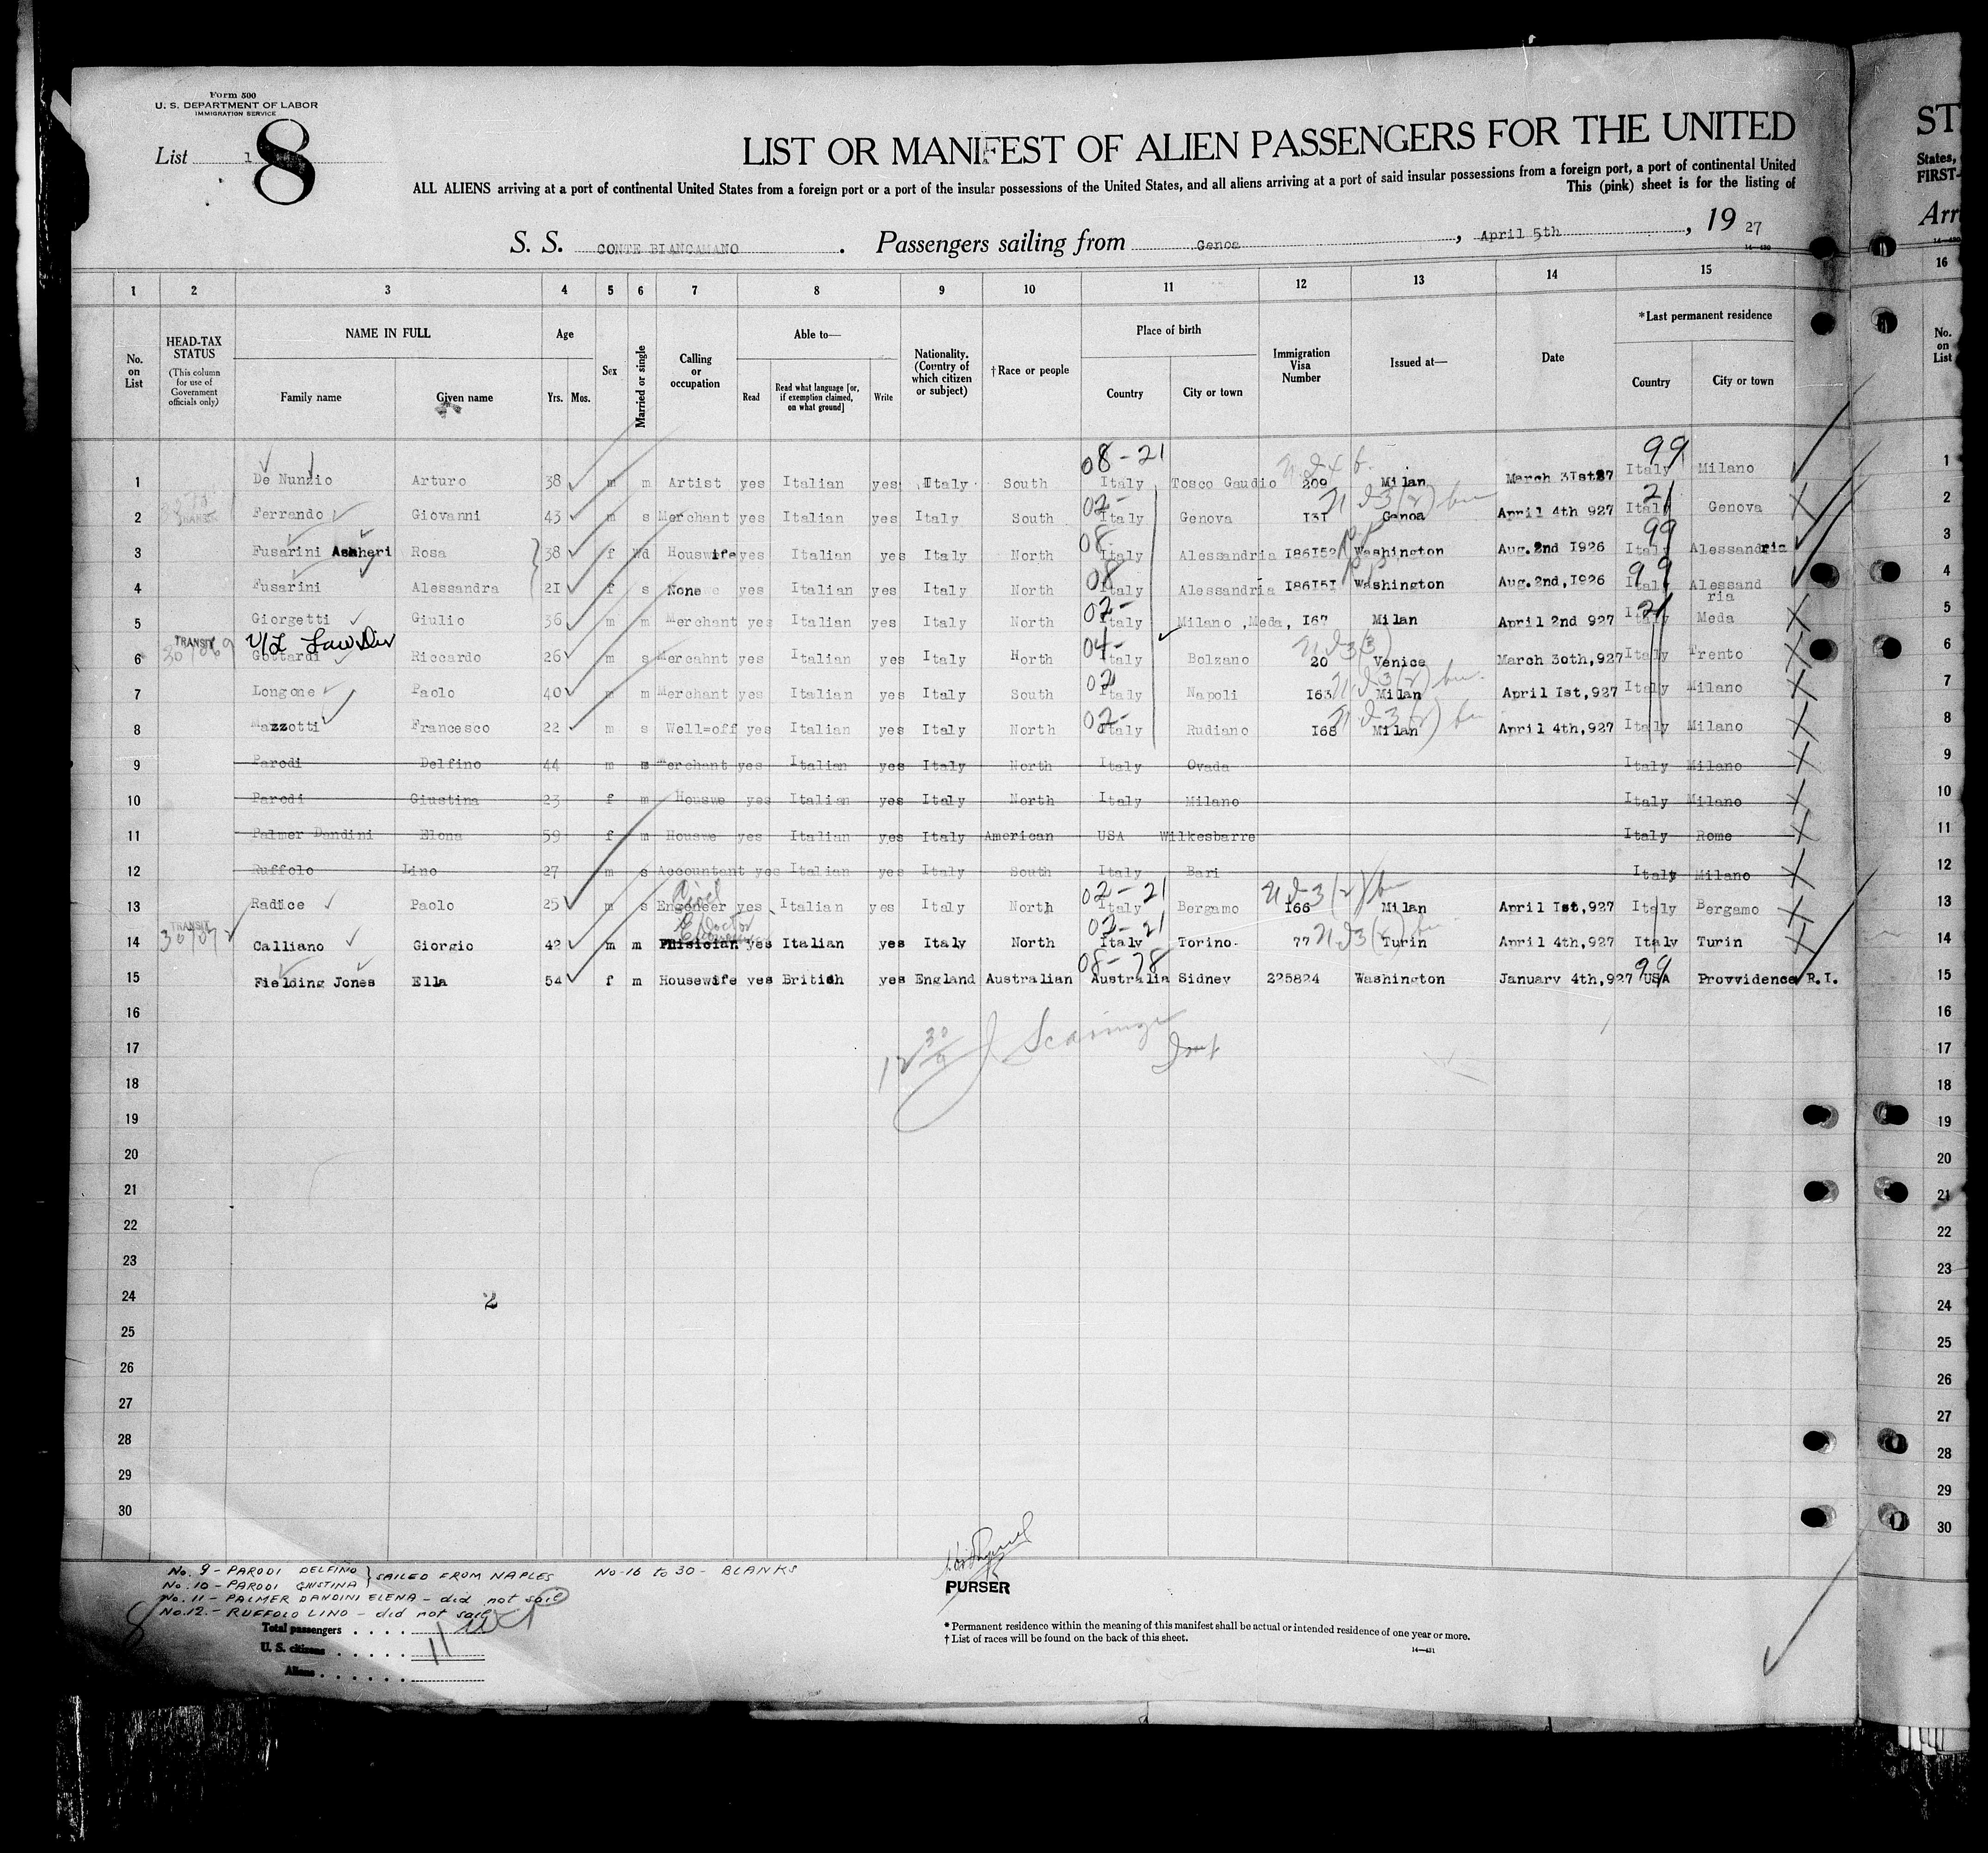 Form 500
U. S. DEPARTMENT OF LABOR
IMMIGRATION SERVICE
List 1 8
LIST OR MANIFEST OF ALIEN PASSENGERS FOR THE UNITED
ALL ALIENS arriving at a port of continental United States from a foreign port or a port of the insular possessions of the United States, and all aliens arriving at a port of said insular possessions from a foreign port, a port of continental United
This (pink) sheet is for the listing of
S. S. CONTE BIANCAMANO. Passengers sailing from Genoa, April 5th, 19 27
1 2 3 4 5 6 7 8 9 10 11 12 13 14 15
No. on List
HEAD-TAX STATUS (This column for use of Government officials only)
NAME IN FULL Family name Given name
Age Yrs. Mos.
Sex
Married or single
Calling or occupation
Able to— Read Read what language [or, if exemption claimed, on what ground] Write
Nationality. (Country of which citizen or subject)
†Race or people
Place of birth Country City or town
Immigration Visa Number
Issued at—
Date
*Last permanent residence Country City or town
08-21 99
1 De Nunzio Arturo 38 m m Artist yes Italian yes Italy South Italy Tosco Gaudio 209 Milan March 3Ist27 Italy Milano
02- 21
2 Ferrando Giovanni 43 m s Merchant yes Italian yes Italy South Italy Genova I3I Genoa April 4th 927 Italy Genova X
08 99
3 Fusarini Asnheri Rosa 38 f Wd Houswife yes Italian yes Italy North Italy Alessandria I86I52 Washington Aug.2nd I926 Italy Alessandria
08 99
4 Fusarini Alessandra 2I f s None yes Italian yes Italy North Italy Alessandria I86I5I Washington Aug.2nd,I926 Italy Alessand
ria
02- 21
5 Giorgetti Giulio 36 m m Merchant yes Italian yes Italy North Italy Milano ,Meda, I67 Milan April 2nd 927 Italy Meda X
TRANSIT 04-
6 Gottardi Riccardo 26 m s Mercahnt yes Italian yes Italy North Italy Bolzano 20 Venice March 30th,927 Italy Trento X
02
7 Longone Paolo 40 m m Merchant yes Italian yes Italy South Italy Napoli I63 Milan April Ist,927 Italy Milano X
02-
8 Mazzotti Francesco 22 m s Well=off yes Italian yes Italy North Italy Rudiano I68 Milan April 4th,927 Italy Milano X
9 Parodi Delfino 44 m m Merchant yes Italian yes Italy North Italy Ovada Italy Milano X
10 Parodi Giustina 23 f m Houswe yes Italian yes Italy North Italy Milano Italy Milano X
11 Palmer Dandini Elena 59 f m Houswe yes Italian yes Italy American USA Wilkesbarre Italy Rome X
12 Ruffolo Lino 27 m s Accountant yes Italian yes Italy South Italy Bari Italy Milano X
Civil 02-21
13 Radice Paolo 25 m s Engeneer yes Italian yes Italy North Italy Bergamo I66 Milan April Ist,927 Italy Bergamo X
TRANSIT Doctor 02-21
14 Calliano Giorgio 42 m m Phisician yes Italian yes Italy North Italy Torino 77 Turin April 4th,927 Italy Turin X
08-78 99
15 Fielding Jones Ella 54 f m Housewife yes British yes England Australian Australia Sidney 225824 Washington January 4th,927 USA Provvidence R.I.
16
17
18
19
20
21
22
23
24 2
25
26
27
28
29
30
No. 9 - PARODI DELFINO } SAILED FROM NAPLES No-16 to 30- BLANKS
No. 10 - PARODI GIUSTINA
No. 11 - PALMER DANDINI ELENA - did not sail
No. 12. - RUFFOLO LINO - did not sail
PURSER
Total passengers 11
U. S. citizens
Aliens
* Permanent residence within the meaning of this manifest shall be actual or intended residence of one year or more.
† List of races will be found on the back of this sheet.
14—431
ST
States,
FIRST-
Arr
16
No. on List
1
2
3
4
5
6
7
8
9
10
11
12
13
14
15
16
17
18
19
20
21
22
23
24
25
26
27
28
29
30